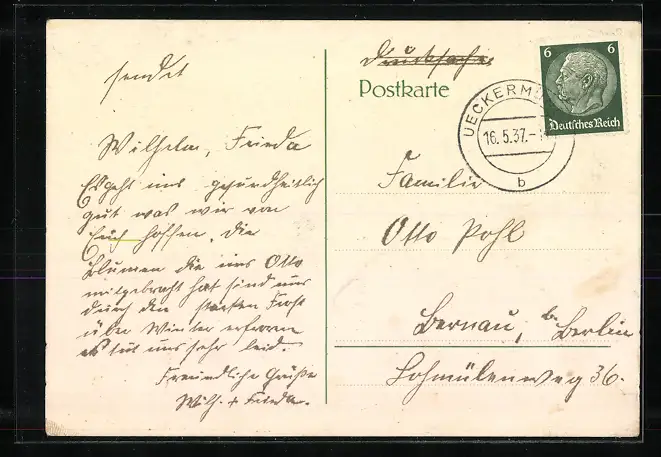 sendet
Wilhelm, Frieda
Es geht uns gesundheitlich
gut was wir von
Euch hoffen. Die
Blumen die uns Otto
mitgebracht hat sind uns
durch den starken Frost
über Winter erfroren
es tut uns sehr leid.
Freundliche Grüße
Wilh. + Frieda.
Drucksache
Postkarte
UECKERM
16.5.37.-
b
6 6
Deutsches Reich
Familie
Otto Pohl
Bernau, b. Berlin
Lohmülenweg 36.